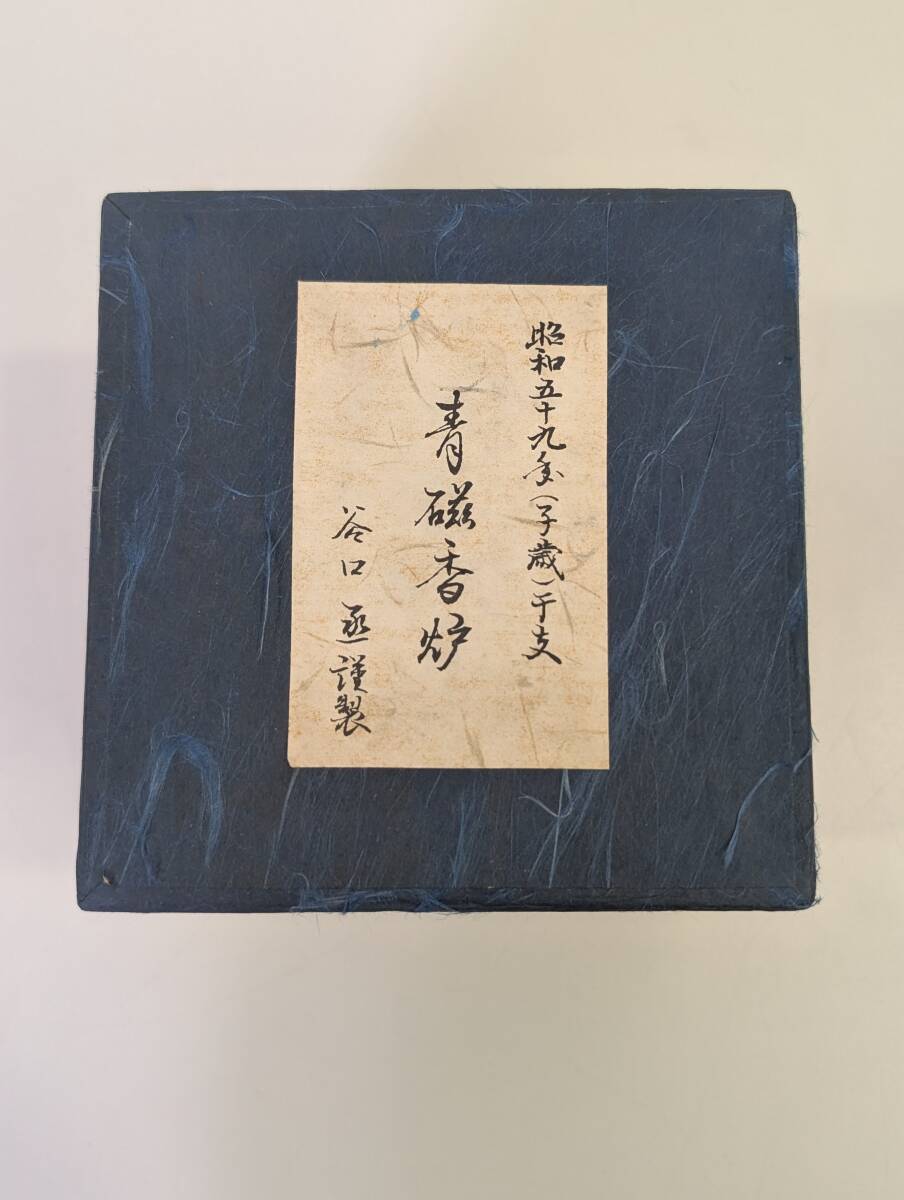 昭和五十九年(子歳)干支
青磁香炉
谷口 丞謹製